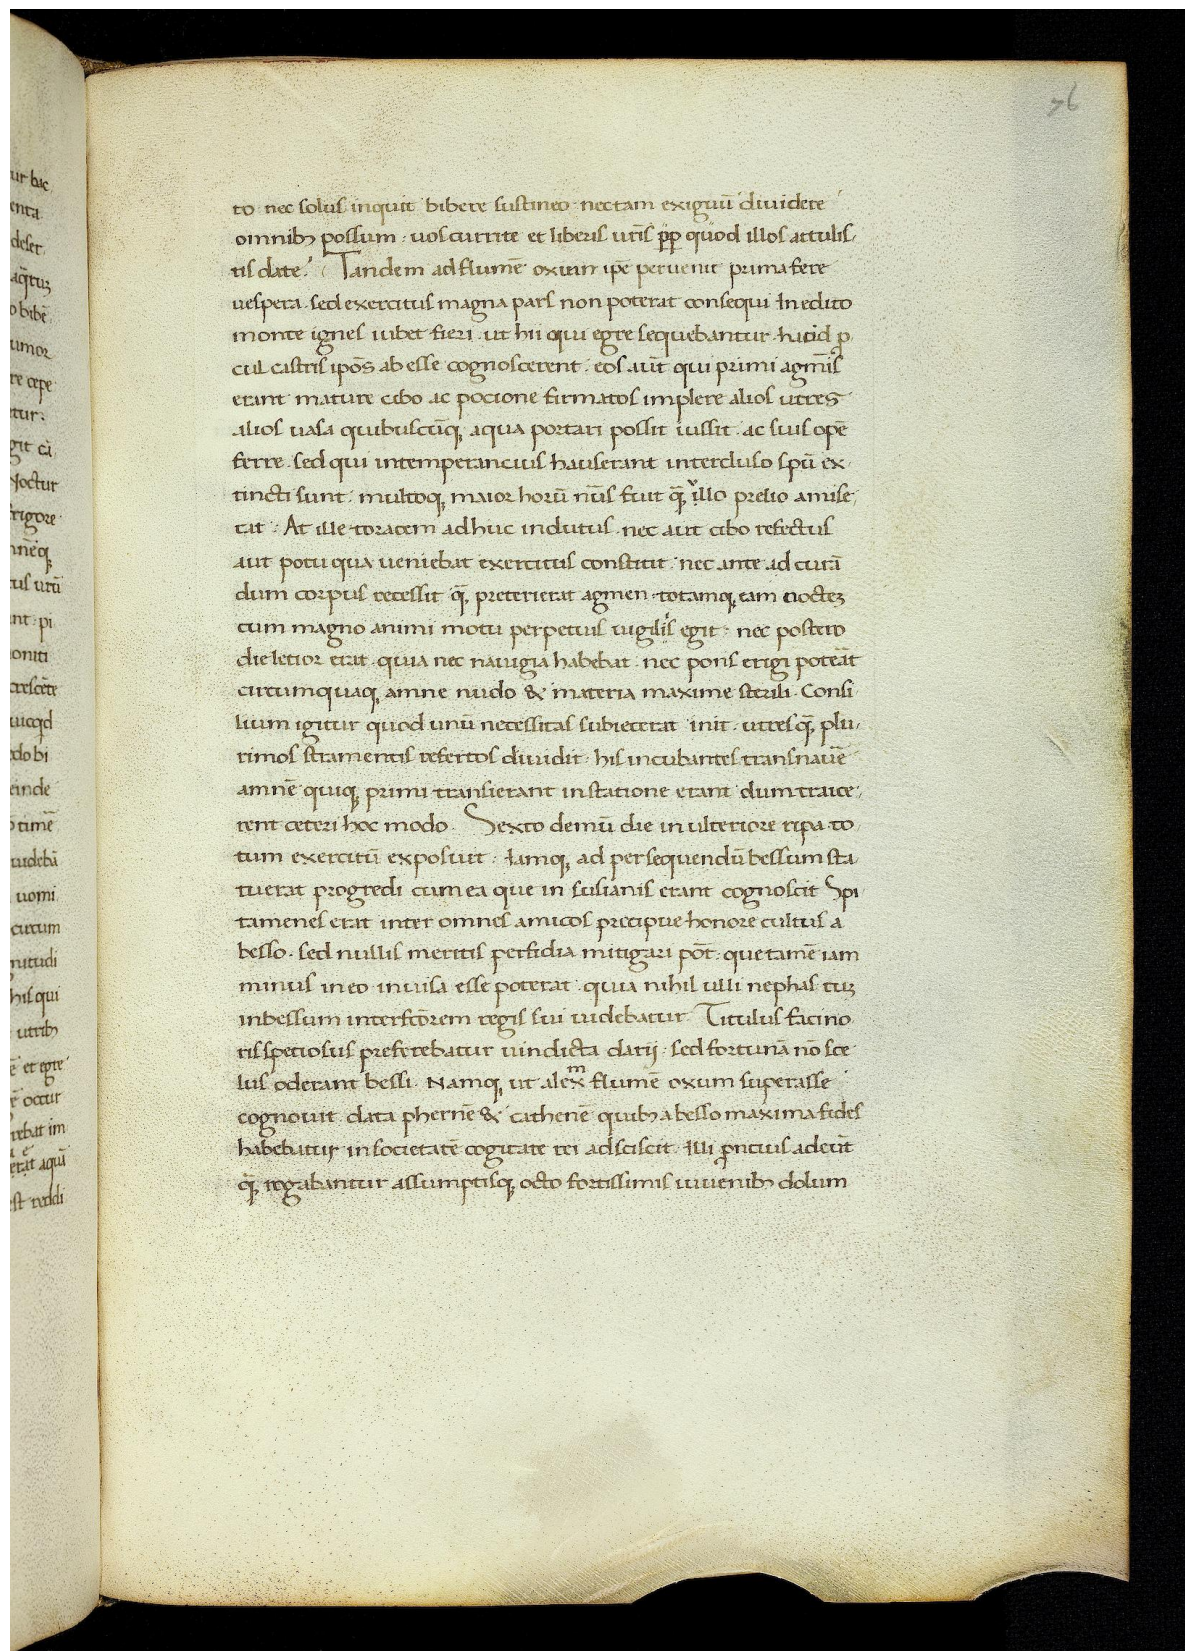 76
ur hac
enta
deser
aq̄tuꝫ
o bibē
umor
re cepe
tur:
git cā
Noctur
frigore
tus utū
nt. pi
oniti
crescēte
uicqd
do bi
einde
timē
uidebā
uomi
circum
nitudi
his qui
utribꝫ
ē et egre
ē occur
rebat im
erat aquā
est reddi
to nec solus inquit bibere sustineo nec tam exiguū diuidere
omnibꝫ possum. uos currite et liberis uris ꝓp̄ quod illos attulis-
tis date. Tandem ad flumē oxum ip̄e peruenit prima fere
uespera. sed exercitus magna pars non poterat consequi. In edito
monte ignes iubet fieri. ut hii qui egre sequebantur haud ꝓ
cul castris ipōs ab esse cognoscerent. eos aūt qui primi agmīs
erant mature cibo ac pocione firmatos implere alios utres
alios uasa quibuscūqꝫ aqua portari possit iussit. ac suis opē
ferre. sed qui intemperancius hauserant intercluso spū ex-
tincti sunt. multoqꝫ maior horū nūs fuit q̄ illo prelio amise-
rat. At ille toracem adhuc indutus. nec aut cibo refectus
aut potu qua ueniebat exercitus constitit. nec ante ad curā
dum corpus recessit q̄ preterierat agmen. totamqꝫ eam nocteꝫ
cum magno animi motu perpetuis uigiliis egit. nec postero
die letior erat. quia nec nauigia habebat. nec pons erigi poterat
circumquaqꝫ amne nudo & materia maxime sterili. Consi
lium igitur quod unū necessitas subiecerat init. utres q̄ plu-
rimos stramentis refertos diuidit. his incubantes transnauē
amnē quiqꝫ primi transierant in statione erant dum traice-
rent ceteri hoc modo. Sexto demū die in ulteriore ripa to
tum exercitū exposuit. Iamqꝫ ad persequendū bessum sta
tuerat progredi cum ea que in susianis erant cognoscit. Spi
tamenes erat inter omnes amicos precipue honore cultus a
besso. sed nullis meritis perfidia mitigari pōt. que tamē iam
minus in eo inuisa esse poterat. quia nihil ulli nephas tuꝫ
in bessum interfc̄orem regis sui uidebatur. Titulus facino
ris speciosus preferebatur uindicta darij. sed fortunā nō sce
lus oderant bessi. Namqꝫ ut alexm flumē oxum superasse
cognouit. data phernē & cathenē quibꝫ a besso maxima fides
habebatur in societatē cogitate rei adsciscit. Illi ꝓncius adeūt
q̄ rogabantur assumptisqꝫ octo fortissimis iuuenibꝫ dolum